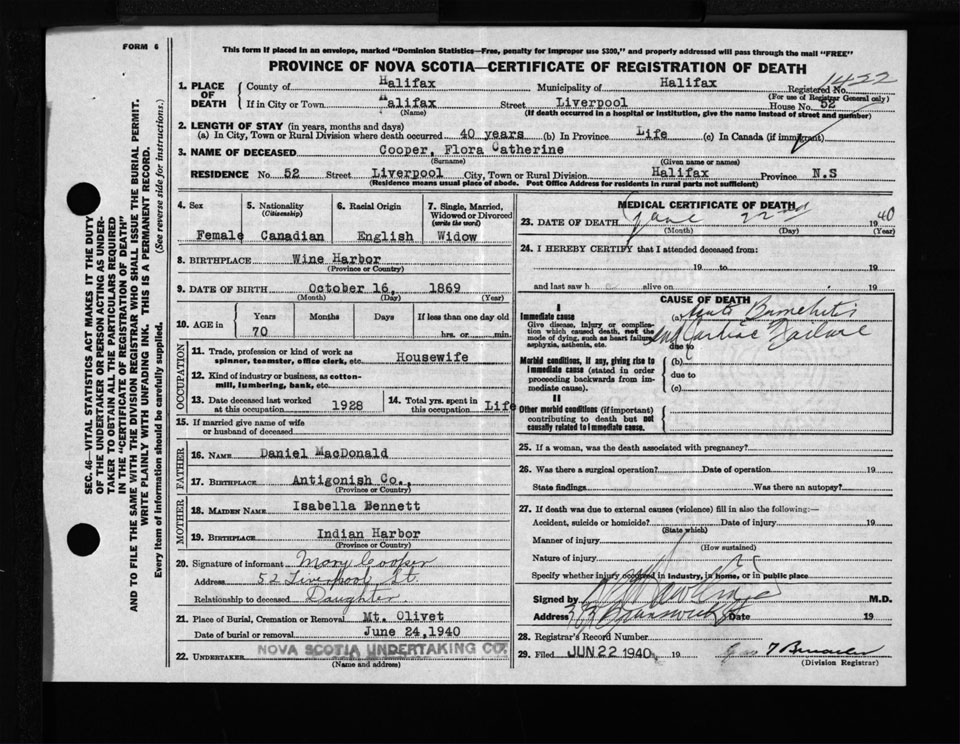 FORM 6
This form if placed in an envelope, marked "Dominion Statistics—Free, penalty for improper use $300," and properly addressed will pass through the mail "FREE"
PROVINCE OF NOVA SCOTIA—CERTIFICATE OF REGISTRATION OF DEATH
1422
1. PLACE OF DEATH
County of Halifax Municipality of Halifax Registered No.
(For use of Registrar General only)
If in City or Town Halifax Street Liverpool House No. 52
(Name) (If death occurred in a hospital or institution, give the name instead of street and number)
2. LENGTH OF STAY (in years, months and days)
(a) In City, Town or Rural Division where death occurred 40 years (b) In Province Life (c) In Canada (if immigrant)
3. NAME OF DECEASED Cooper, Flora Catherine
(Surname) (Given name or names)
RESIDENCE No. 52 Street Liverpool City, Town or Rural Division Halifax Province N.S
(Residence means usual place of abode. Post Office Address for residents in rural parts not sufficient)
4. Sex Female
5. Nationality (Citizenship) Canadian
6. Racial Origin English
7. Single, Married, Widowed or Divorced (write the word) Widow
8. BIRTHPLACE Wine Harbor
(Province or Country)
9. DATE OF BIRTH October 16, 1869
(Month) (Day) (Year)
10. AGE in Years Months Days If less than one day old
70 hrs. or min.
OCCUPATION
11. Trade, profession or kind of work as spinner, teamster, office clerk, etc. Housewife
12. Kind of industry or business, as cotton-mill, lumbering, bank, etc.
13. Date deceased last worked at this occupation 1928
14. Total yrs. spent in this occupation Life
15. If married give name of wife or husband of deceased
FATHER
16. NAME Daniel MacDonald
17. BIRTHPLACE Antigonish Co.,
(Province or Country)
MOTHER
18. MAIDEN NAME Isabella Bennett
19. BIRTHPLACE Indian Harbor
(Province or Country)
20. Signature of informant Mary Cooper
Address 52 Liverpool St.
Relationship to deceased Daughter
21. Place of Burial, Cremation or Removal Mt. Olivet
Date of burial or removal June 24, 1940
22. UNDERTAKER NOVA SCOTIA UNDERTAKING CO.
(Name and address)
MEDICAL CERTIFICATE OF DEATH
23. DATE OF DEATH June 22nd 1940
(Month) (Day) (Year)
24. I HEREBY CERTIFY that I attended deceased from:
19 to 19
and last saw h alive on 19
CAUSE OF DEATH
I
Immediate cause
Give disease, injury or complication which caused death, not the mode of dying, such as heart failure, asphyxia, asthenia, etc.
(a) Acute Bronchitis
and Cardiac Failure
due to
Morbid conditions, if any, giving rise to immediate cause (stated in order proceeding backwards from immediate cause).
(b)
due to
(c)
II
Other morbid conditions (if important) contributing to death but not causally related to immediate cause.
25. If a woman, was the death associated with pregnancy?
26. Was there a surgical operation? Date of operation 19
State findings Was there an autopsy?
27. If death was due to external causes (violence) fill in also the following:—
Accident, suicide or homicide? Date of injury 19
(State which)
Manner of injury
(How sustained)
Nature of injury
Specify whether injury occurred in industry, in home, or in public place
Signed by M.D.
Address Brunswick St Date 19
28. Registrar's Record Number
29. Filed JUN 22 1940 19
(Division Registrar)
SEC. 46—VITAL STATISTICS ACT MAKES IT THE DUTY
OF THE UNDERTAKER OR PERSON ACTING AS UNDER-
TAKER TO OBTAIN ALL THE PARTICULARS REQUIRED
IN THE "CERTIFICATE OF REGISTRATION OF DEATH"
AND TO FILE THE SAME WITH THE DIVISION REGISTRAR WHO SHALL ISSUE THE BURIAL PERMIT.
WRITE PLAINLY WITH UNFADING INK. THIS IS A PERMANENT RECORD.
Every item of Information should be carefully supplied. (See reverse side for instructions.)